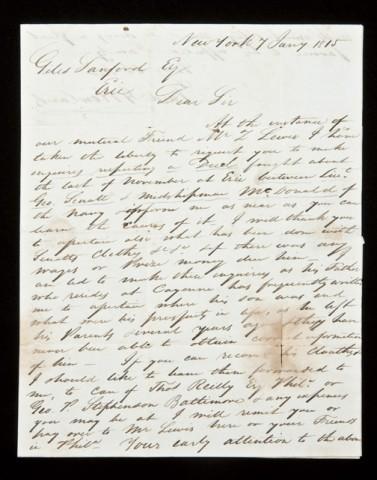 New York 7 Jany 1815
Giles Sanford Esq
Erie
Dear Sir
At the instance of
our mutual Friend Mr Lewis I have
taken the liberty to request you to make
inquires respecting a Duel fought about
the last of November at Erie between Lieut
Geo Senatt & Midshipman McDonald of
the Navy inform me as near as you can
learn the causes of it I will thank you
to ascertain also what has been done with
Senatts Clothes &c & if there was any
wages or Prize money due him. I
am led to make these enquiries as his Father
who resides at Cayenne has frequently written
me to ascertain where his son was and
what were his prospects in life, as he left
his Parents several years ago & they have
never been able to obtain correct information
of him — If you can recover his cloathes
I should like to have them forwarded to
me, to Care of Thos Reilly Esq Phila or
Geo P. Stephenson Baltimore & any expenses
you may be at I will remit you or
pay over to Mr Lewis here or your Friends
in Phila Your early attention to the above